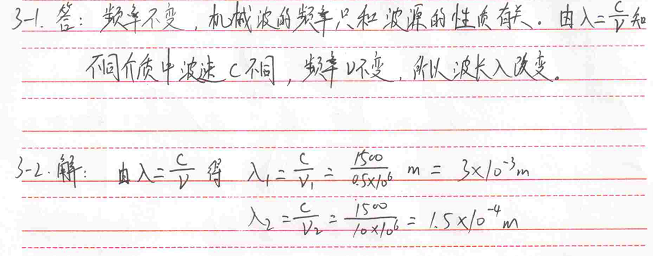 3-1. 答: 频率不变,机械波的频率只和波源的性质有关。由λ=C/ν知
不同介质中波速C不同,频率ν不变,所以波长λ改变。
3-2. 解: 由λ=C/ν 得 λ₁=C/ν₁=1500/0.5×10⁶ m = 3×10⁻³m
λ₂=C/ν₂=1500/10×10⁶=1.5×10⁻⁴m